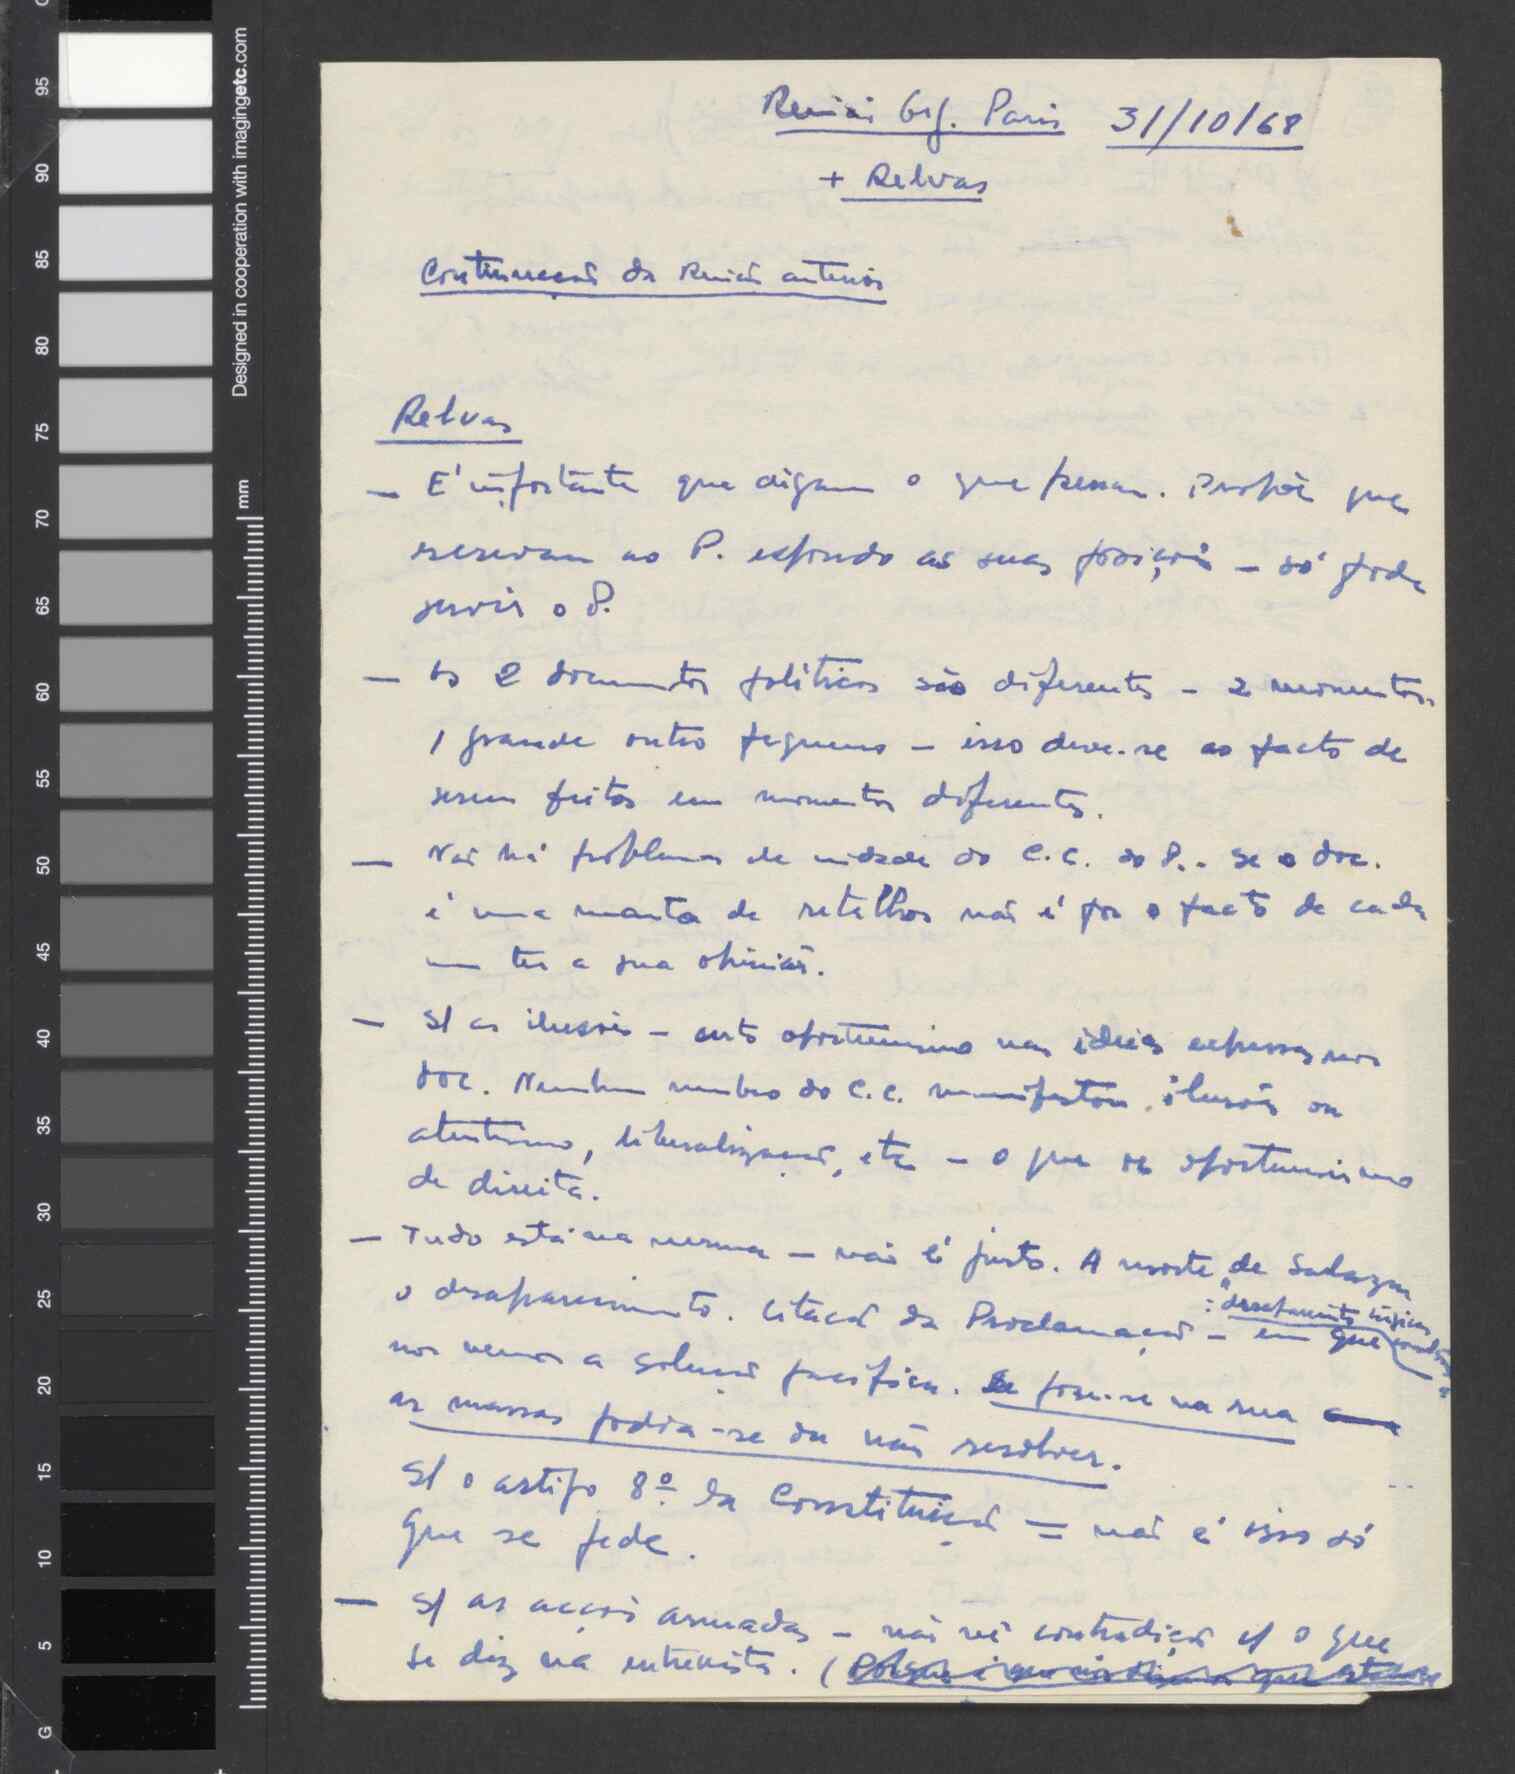 Reunião Org. Paris 31/10/68
+ Relvas
Continuação da Reunião anterior
Relvas
— É importante que digam o que pensam. Propõe que
escrevam ao P. expondo as suas posições — só pode
servir o P.
— Os 2 documentos políticos são diferentes — 2 momentos.
1 grande outro pequeno — isso deve-se ao facto de
serem feitos em momentos diferentes.
— Não há problemas de unidade do C.C. do P.. Se o doc.
é uma manta de retalhos não é por o facto de cada
um ter a sua opinião.
— S/ as ilusões — certo oportunismo nas ideias expressas nos
doc. Nenhum membro do C.C. manifestou ilusões ou
atentismo, liberalização, etc — o que é oportunismo
de direita.
— Tudo está na mesma — não é justo. A morte de Salazar
o desaparecimento. Citação da Proclamação — em que
nos vemos a solução pacífica. Se fosse-se na rua
as massas podia-se ou não resolver.
S/ o artigo 8º da Constituição = não é isso só
que se pede.
— S/ as acções armadas — não vê contradição c/ o que
se diz na entrevista. (
Designed in cooperation with imagingetc.com
mm
95
90
85
80
75
70
65
60
55
50
45
40
35
30
25
20
15
10
5
G